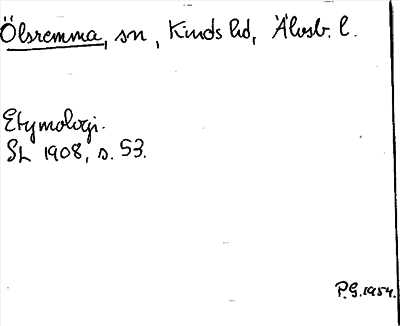 Ölsremma, sn, Kinds hd, Älvsb. l.
Etymologi.
SL 1908, s. 53.
P.G. 1954.